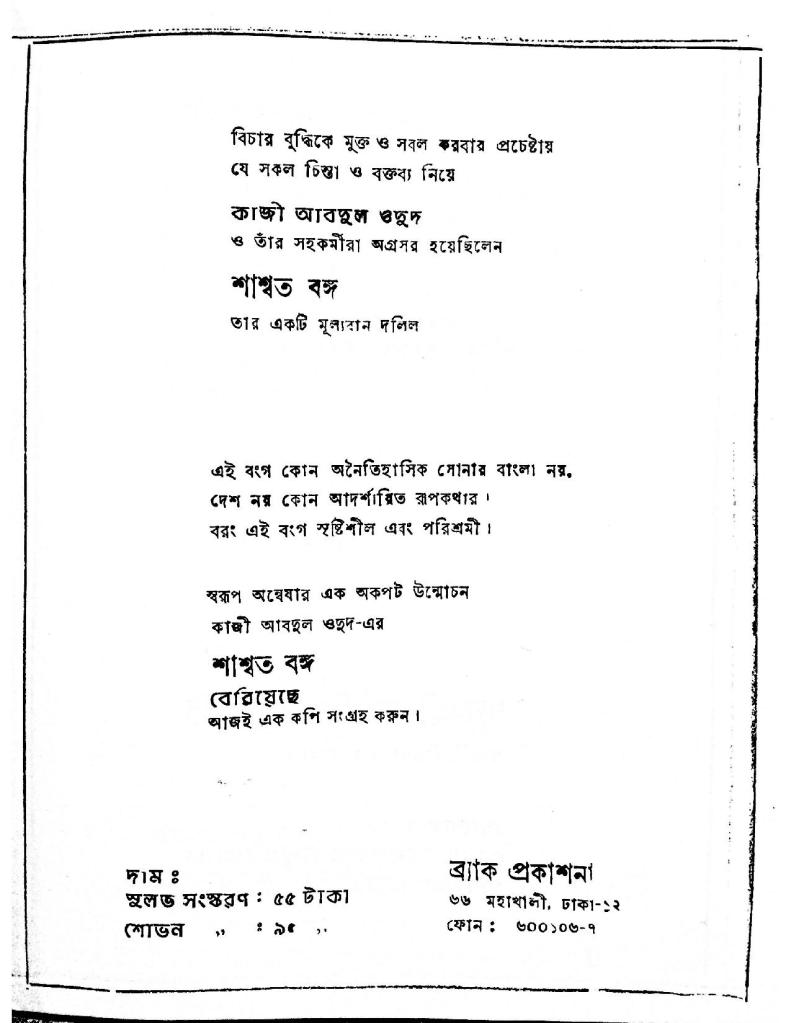 বিচার বুদ্ধিকে মুক্ত ও সবল করবার প্রচেষ্টায়
যে সকল চিন্তা ও বক্তব্য নিয়ে
কাজী আবদুল ওদুদ
ও তাঁর সহকর্মীরা অগ্রসর হয়েছিলেন
শাশ্বত বঙ্গ
তার একটি মূল্যবান দলিল
এই বংগ কোন অনৈতিহাসিক সোনার বাংলা নয়,
দেশ নয় কোন আদর্শায়িত রূপকথার।
বরং এই বংগ সৃষ্টিশীল এবং পরিশ্রমী।
স্বরূপ অন্বেষার এক অকপট উন্মোচন
কাজী আবদুল ওদুদ-এর
শাশ্বত বঙ্গ
বেরিয়েছে
আজই এক কপি সংগ্রহ করুন।
দাম ঃ
সুলভ সংস্করণ : ৫৫ টাকা
শোভন ,, : ৯৫ ,,
ব্র্যাক প্রকাশনা
৬৬ মহাখালী, ঢাকা-১২
ফোন : ৬০০১০৬-৭